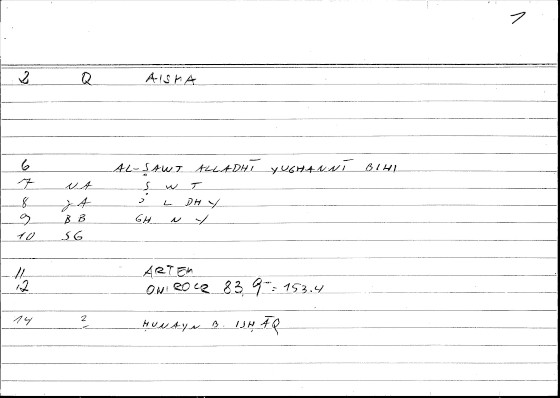 1
2 Q AISHA
6 AL-ṢAWT ALLADHĪ YUGHANNĪ BIHI
7 NA Ṣ W T
8 JA ' L DH Y
9 BB GH N Y
10 SG
11 ARTEM
12 ONIROCR 83,9 = 153.4
14 2 ḤUNAYN B. ISḤĀQ